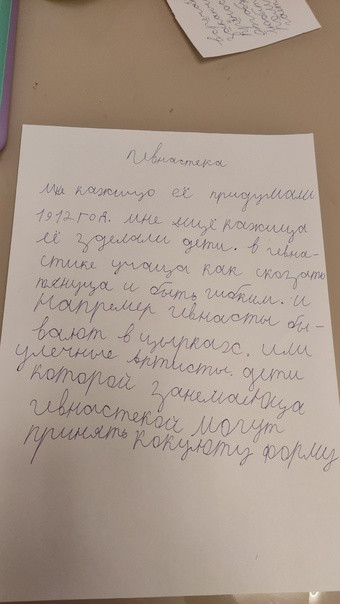 Гивнастека
мы кажицо её придумали
1912 год. мне ищё кажица
её зделали дети. в гивна-
стике учаца как скозать
тянуца и быть гибким. и
напремер гивнасты бы-
вают в цырках. или
улечные артисты. дети
которой занемающа
гивнастекой могут
принять кокуюту форму